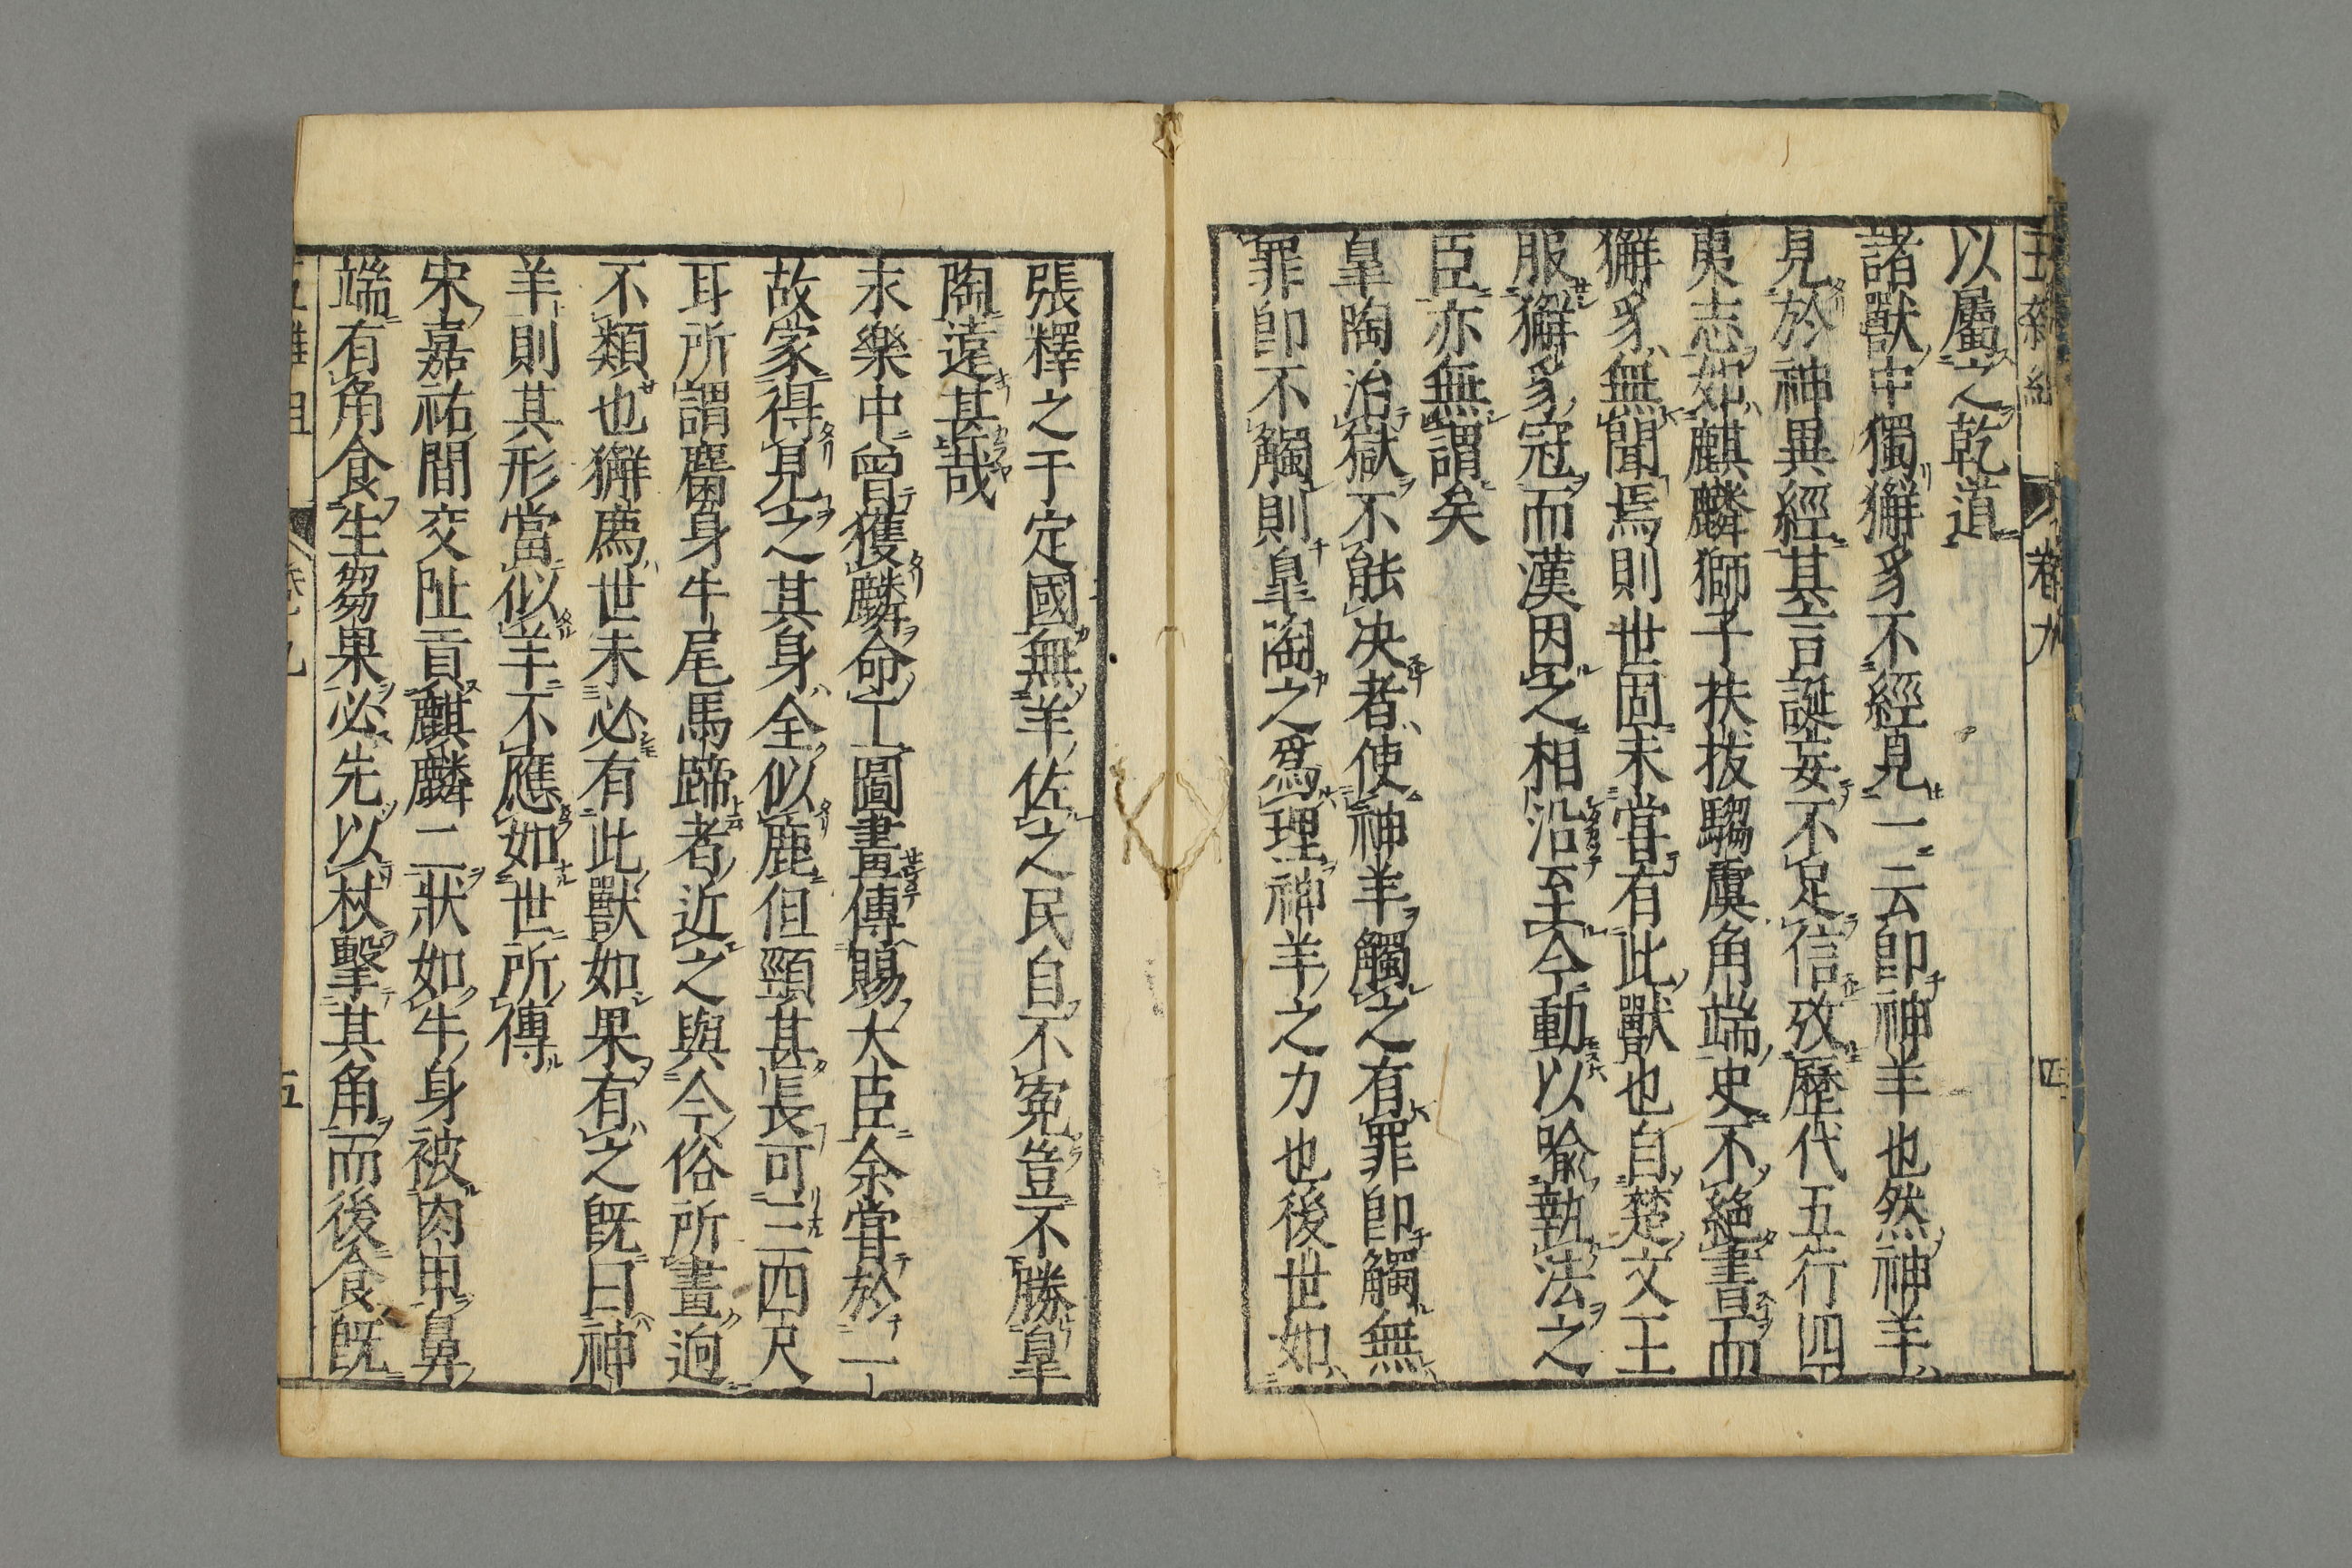 以屬之乾道
諸獸中獨獬豸不經見一云卽神羊也然神羊
見於神異經其言誕妄不足信攷歷代五行四
夷志如麒麟獅子扶拔騶虞角端史不絕書而
獬豸無聞焉則世固未嘗有此獸也自楚文王
服獬豸冠而漢因之相沿至今動以喻執法之
臣亦無謂矣
皐陶治獄不能决者使神羊觸之有罪卽觸無
罪卽不觸則皐陶之爲理神羊之力也後世如
張釋之于定國無羊佐之民自不寃豈不勝皐
陶遠甚哉
永樂中曾獲麟命工圖畫傳賜大臣余嘗於一
故家得見之其身全似鹿但頸甚長可三四尺
耳所謂麕身牛尾馬蹄者近之與今俗所畫迥
不類也獬廌世未必有此獸如果有之旣曰神
羊則其形當似羊不應如世所傳
宋嘉祐間交阯貢麒麟二狀如牛身被肉甲鼻
端有角食生芻果必先以杖擊其角而後食旣
卷九
五